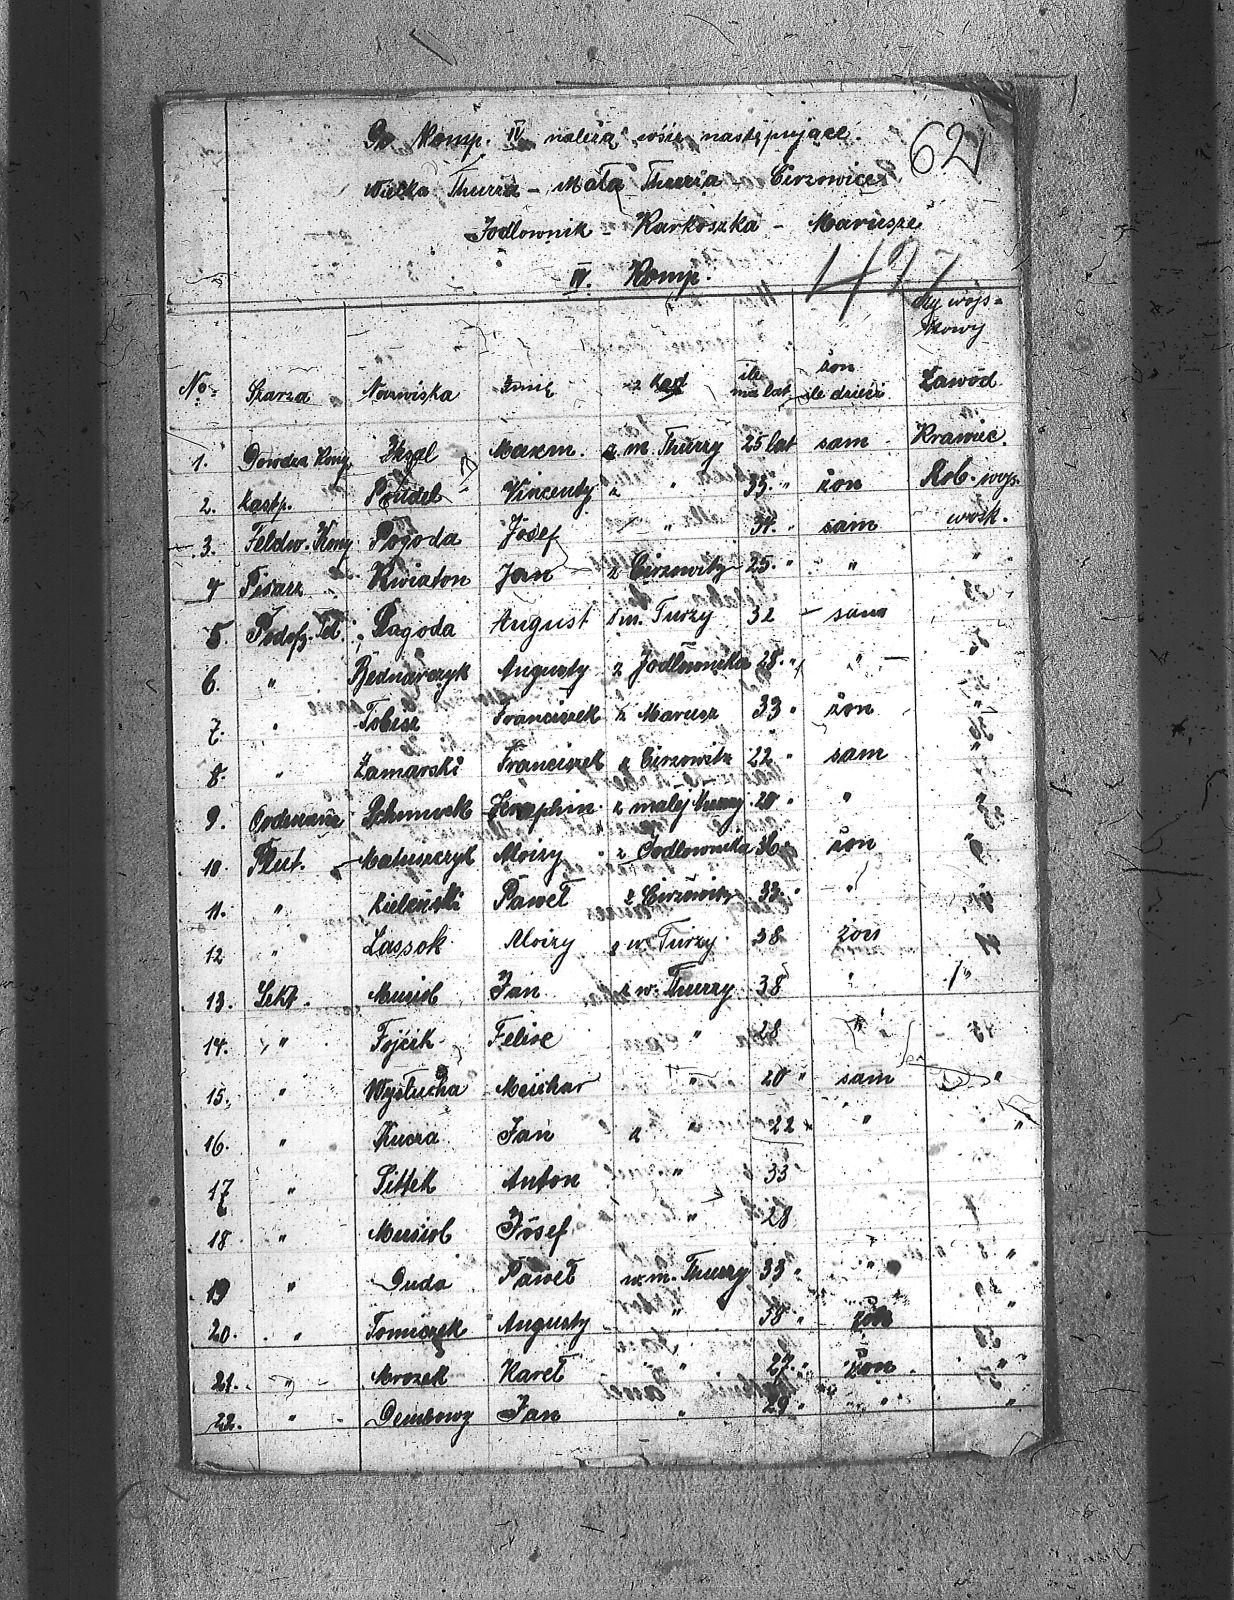 Do Komp. IV należą wśie następujące.
62
Wielka Thurza - Mała Thurza - Cirzowice
Jodlownik - Karkoszka - Marusze
IV. Komp.
1427
czy wojs=
kowy
No= Szarza Nazwiska Imię z kąd ile ma lat żon ile dzieci Zawód
1. Dowdza Komp. Maxm. z m. Thurzy 25 lat sam Krawiec.
2. Zastp. Poudel Vincenty z " 35 " żon Rob. wojs.
3. Feldw. Komp Pogoda Josef " 34 " sam wojsk.
4 Pisarz Kwiaton Jan z Cirzowitz 25 " " "
5 Podofz. Pagoda August m. Turzy 32 - sam
6. " Bednarczyk Augusty z Jodlownika 28 " "
7. " Tobisz Franciszek z Marusz 33 " żon
8. " Zamarski Franciszek z Cirzowitz 22 " sam
9. Schmurk Seraphin z małej Thurzy 20 " "
10. Plut. Matuszczyk Aloizy z Jodlownika 36 " żon
11. " Zielinski Paweł z Cirzowitz 33 " "
12 " Lassok Aloizy z w. Turzy 38 żon
13. Sekt. Musiol Jan z w. Thurzy 38 " "
14. " Fojcik Felixe " 28 "
15. " Wystucha Meichar " 20 " sam "
16. " Kucza Jan z " 22 " "
17 " Sittek Anton " 33
18 " Musiol Josef " 28
19 " Duda Paweł w. m. Thurzy 33 " " "
20. " Tomiczek Augusty " 38 " żon "
21. " Mrozek Kareł " 27 " żon "
22. " Dembowy Jan " 29 " " "